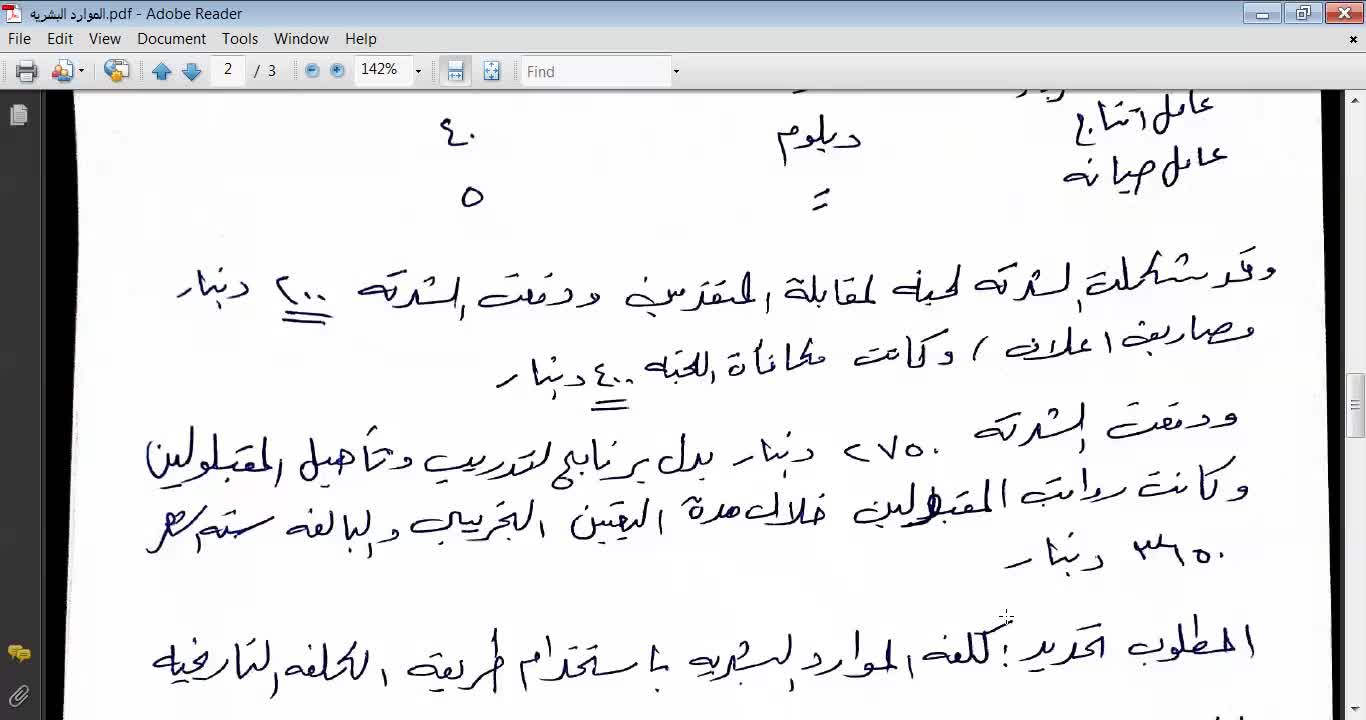 الموارد البشريه.pdf - Adobe Reader
File Edit View Document Tools Window Help
2 / 3 142% Find
عامل انتاج دبلوم ٤٠
عامل صيانه = ٥
وقد شكلت الشركه لجنه لمقابلة المتقدمين ودفعت الشركه ٢٠٠ دينار
مصاريف اعلان / وكانت مكافأة اللجنه ٤٠٠ دينار
ودفعت الشركه ٢٧٥٠ دينار بدل برنامج لتدريب وتأهيل المقبلولين
وكانت رواتب المقبولين خلال مدة التعيين التجريبي والبالغه سته اشهر
دينار
المطلوب تحديد: كلفه الموارد البشريه باستخدام طريقه الكلفه التاريخيه